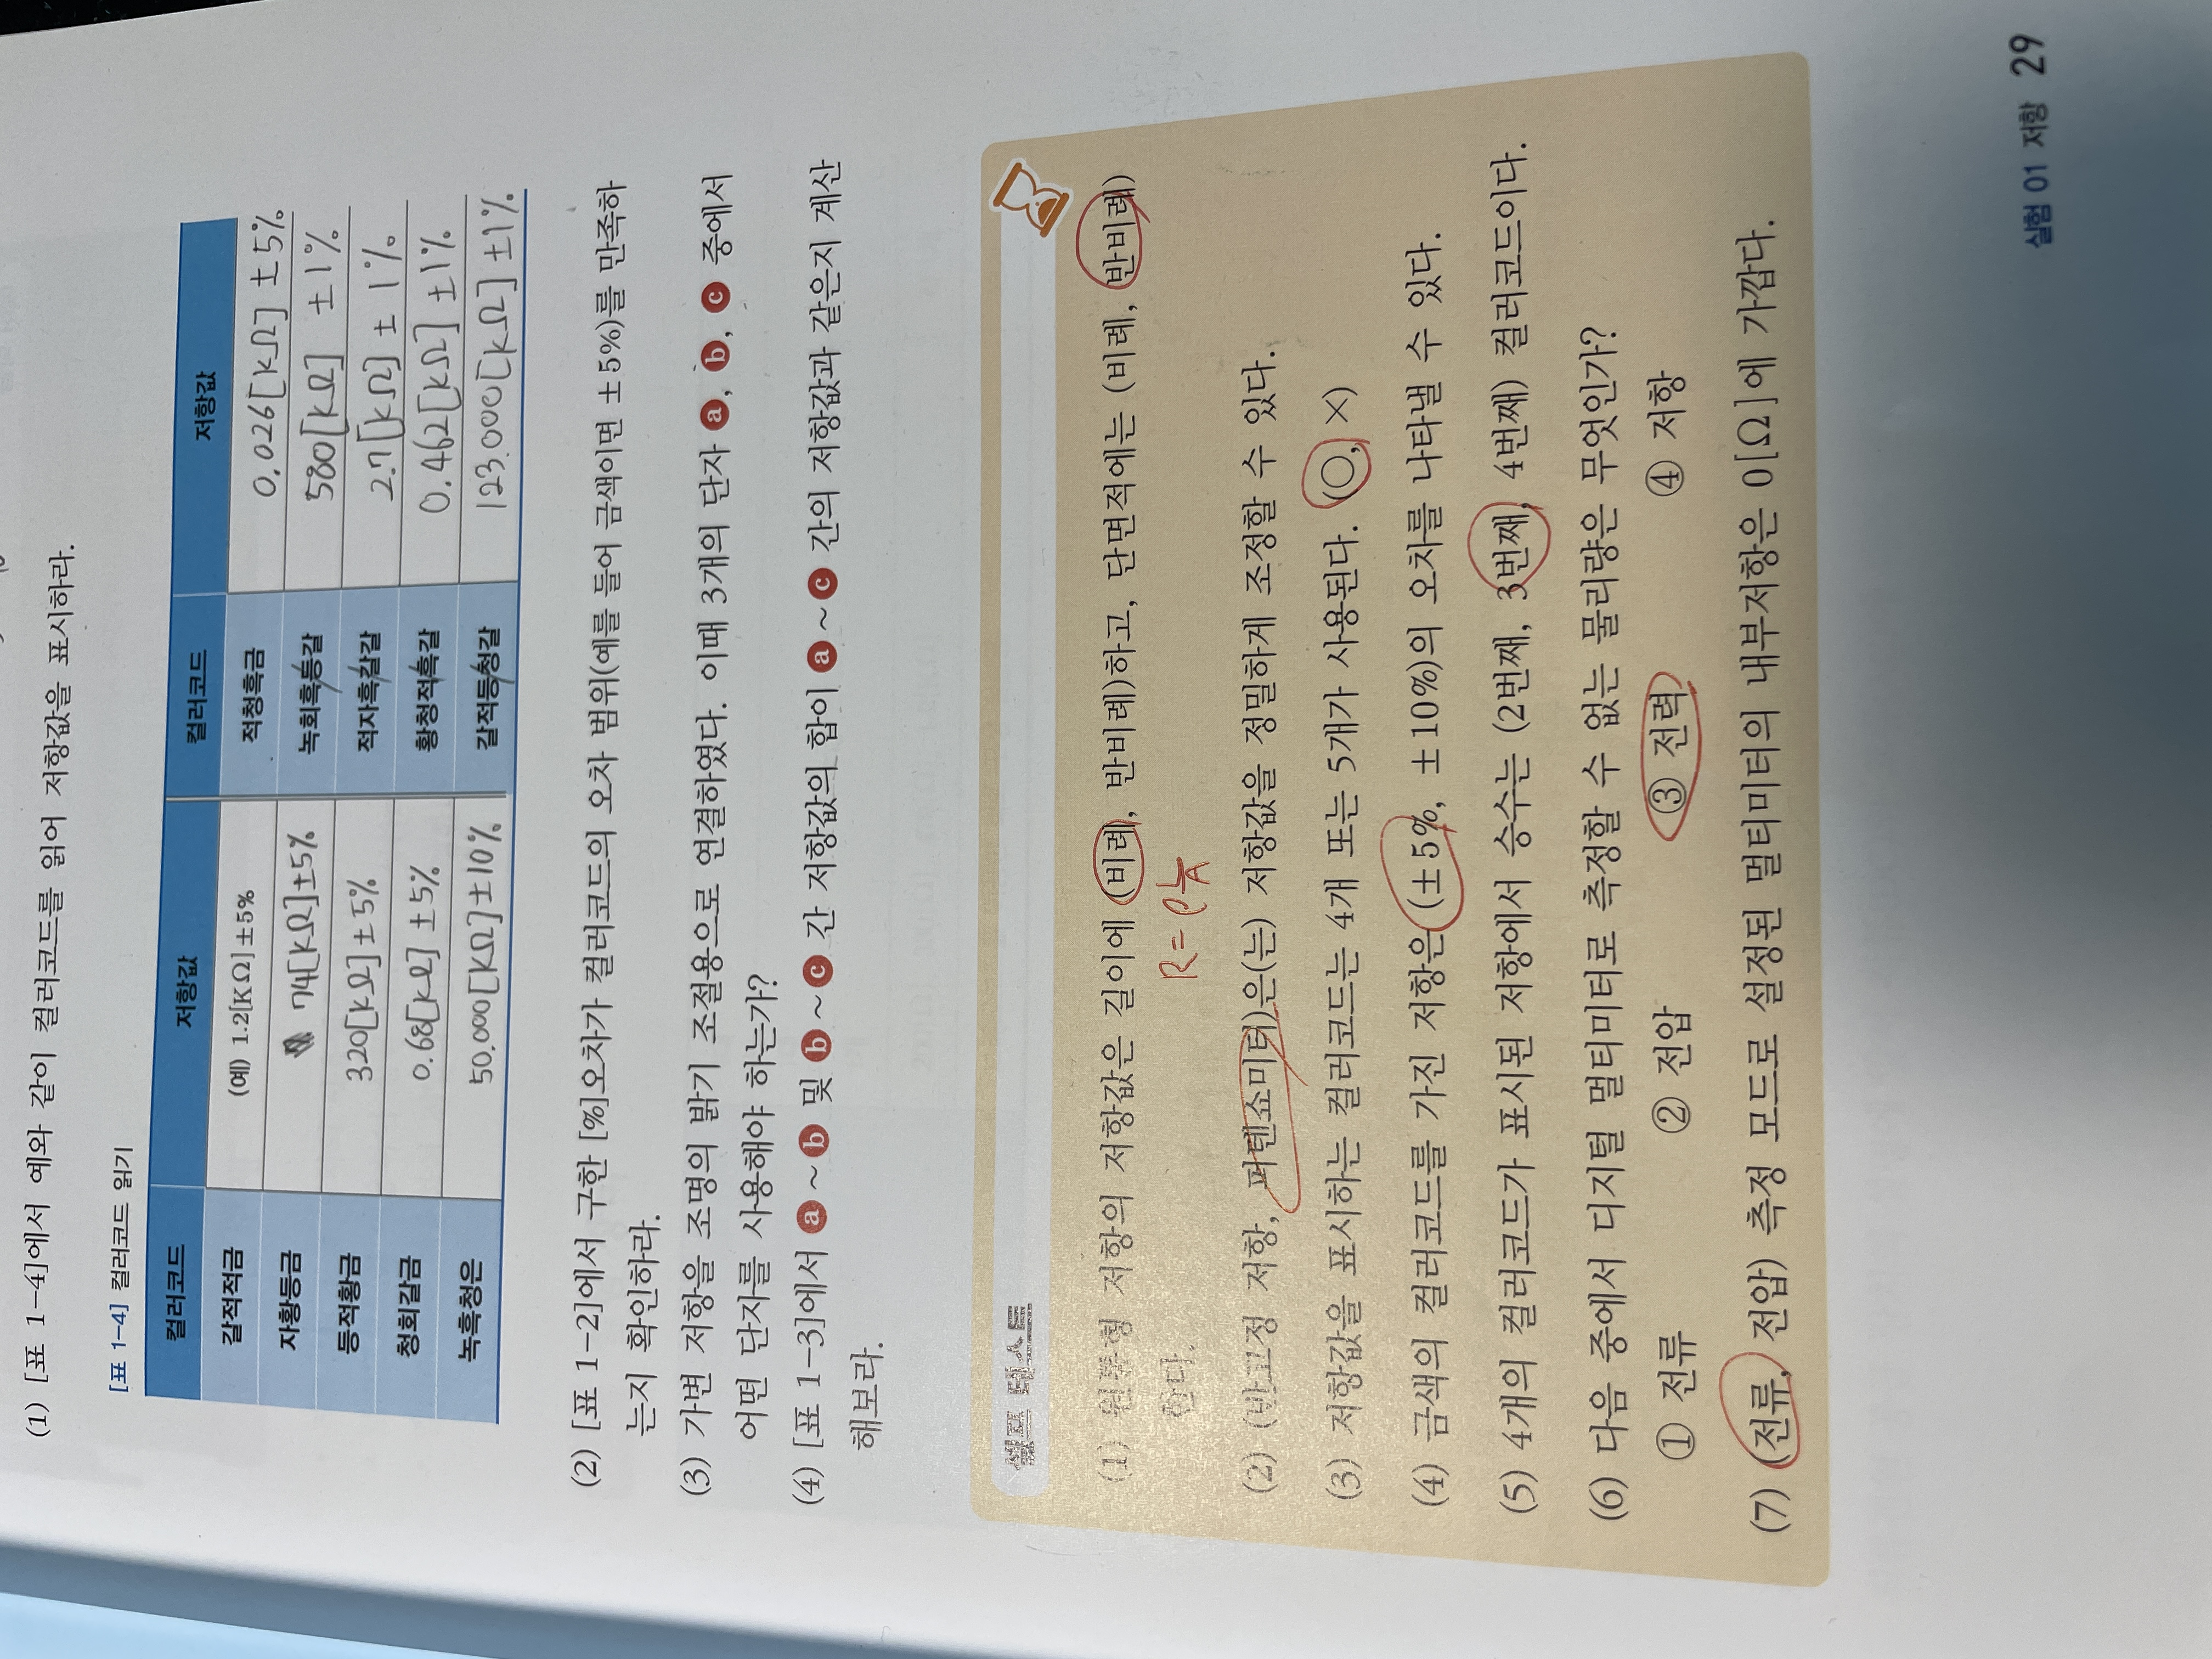 (1) [표 1-4]에서 예와 같이 컬러코드를 읽어 저항값을 표시하라.
[표 1-4] 컬러코드 읽기
컬러코드 저항값 컬러코드 저항값
갈적적금 (예) 1.2[KΩ]±5% 적청흑금 0.026[kΩ] ±5%
자황등금 74[kΩ]±5% 녹회흑등갈 580[kΩ] ±1%
등적황금 320[kΩ]±5% 적자흑갈갈 2.7[kΩ] ±1%
청회갈금 0.68[kΩ] ±5% 황청적흑갈 0.462[kΩ] ±1%
녹흑청은 50,000[KΩ]±10% 갈적등청갈 123.000[kΩ] ±1%
(2) [표 1-2]에서 구한 [%]오차가 컬러코드의 오차 범위(예를 들어 금색이면 ±5%)를 만족하
는지 확인하라.
(3) 가변 저항을 조명의 밝기 조절용으로 연결하였다. 이때 3개의 단자 a, b, c 중에서
어떤 단자를 사용해야 하는가?
(4) [표 1-3]에서 a~b 및 b~c 간 저항값의 합이 a~c 간의 저항값과 같은지 계산
해보라.
셀프 테스트
(1) 원통형 저항의 저항값은 길이에 (비례, 반비례)하고, 단면적에는 (비례, 반비례)
한다.
R=ρL/A
(2) (반고정 저항, 퍼텐쇼미터)은(는) 저항값을 정밀하게 조정할 수 있다.
(3) 저항값을 표시하는 컬러코드는 4개 또는 5개가 사용된다. (○, ×)
(4) 금색의 컬러코드를 가진 저항은 (±5%, ±10%)의 오차를 나타낼 수 있다.
(5) 4개의 컬러코드가 표시된 저항에서 승수는 (2번째, 3번째, 4번째) 컬러코드이다.
(6) 다음 중에서 디지털 멀티미터로 측정할 수 없는 물리량은 무엇인가?
① 전류 ② 전압 ③ 전력 ④ 저항
(7) (전류, 전압) 측정 모드로 설정된 멀티미터의 내부저항은 0[Ω]에 가깝다.
실험 01 저항 29